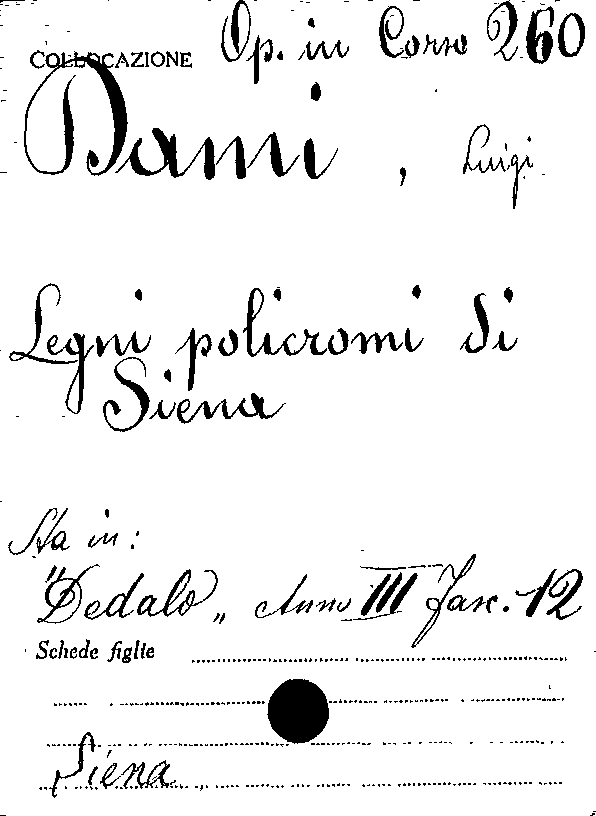 COLLOCAZIONE Op. in Corso 260
Dami, Luigi
Legni policromi di
Siena
Sta in:
"Dedalo„ Anno III Fasc. 12
Schede figlie
Siena